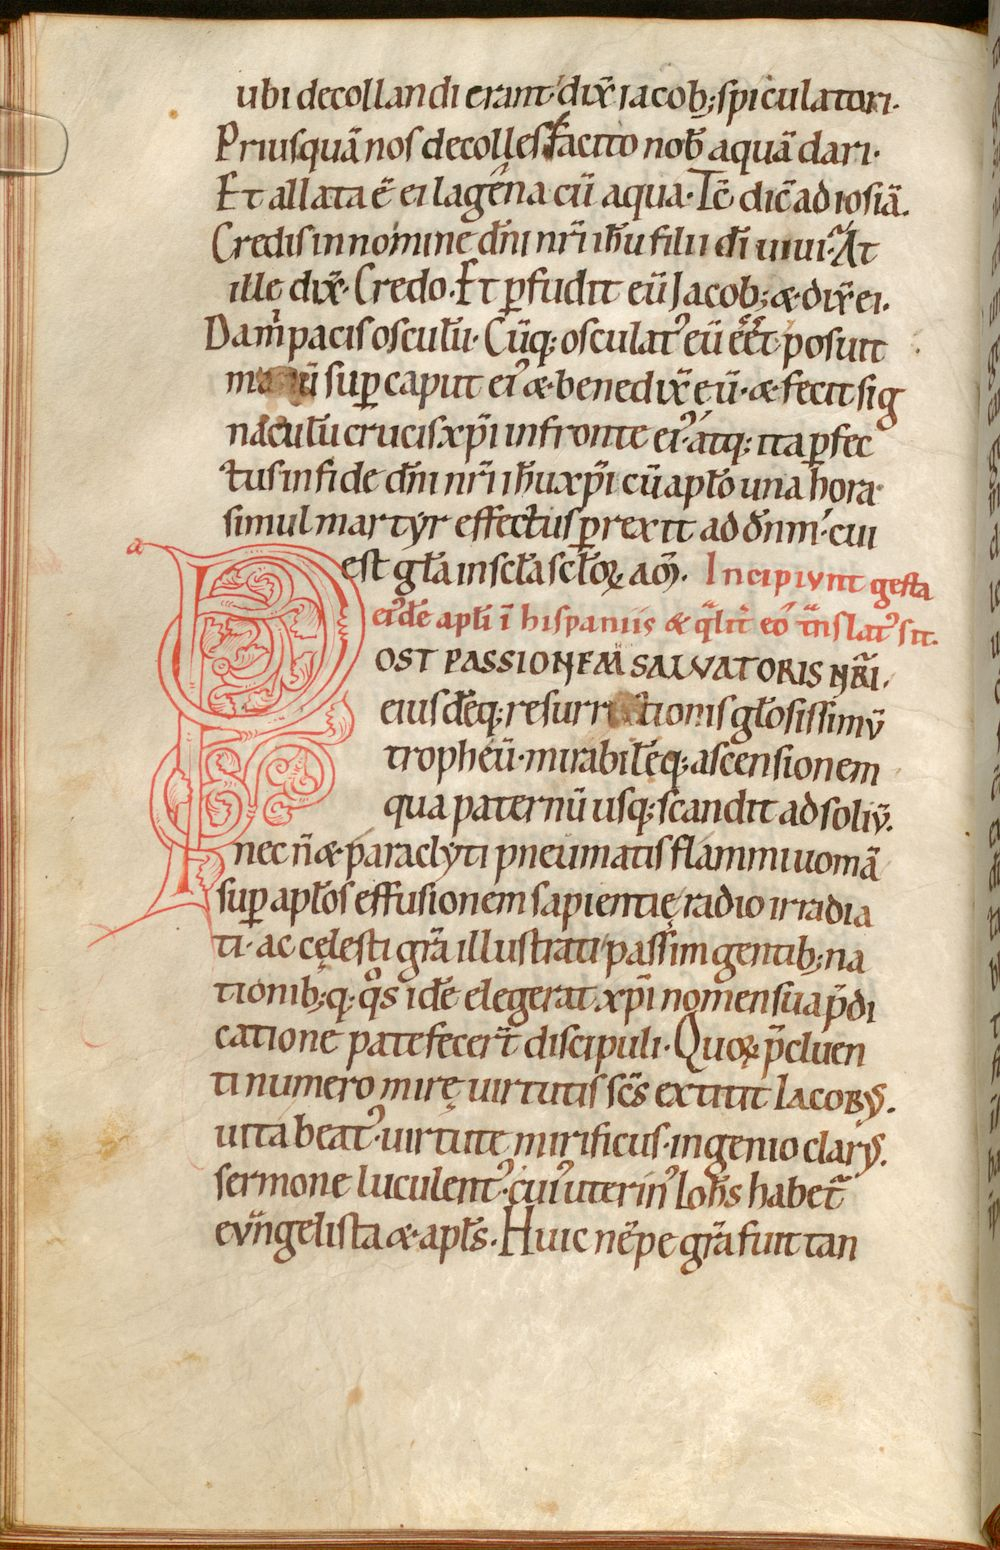 ubi decollandi erant dix̄ iacob; spiculatori.
Priusquā nos decolles facito nob̄ aquā dari.
Et allata ē ei lagena cū aqua. Tc̄ dic̄ ad iosiā.
Credis in nomine dn̄i nr̄i ih̄u filii dī uiui. At
ille dix̄. Credo. Et ꝑfudit eū Jacob; & dix̄ ei.
Dam̄ pacis osculū. Cūq; osculatꝰ eū eēt posuit
manū suꝑ caput eiꝰ & benedix̄ eū. & fecit sig
naculū crucis xp̄i in fronte eiꝰ. atq; ita ꝑfec
tus in fide dn̄i nr̄i ih̄u xp̄i cū apl̄o una hora
simul martyr effectus ꝑrexit ad dn̄m. cui
est gl̄a in scl̄a scl̄oꝝ am̄. Incipiunt gesta
eiꝰdē apl̄i ī hispaniis & qͣlit̄ eo tͣnslatꝰ sit.
POST PASSIONEM SALVATORIS NR̄I.
eiusdēq; resurrectionis gl̄osissimū
tropheū. mirabilēq; ascensionem
qua paternū usq; scandit ad soliū.
nec n̄ & paraclyti pneumatis flammiuomā
suꝑ apl̄os effusionem sapientię radio irradia
ti. ac cęlesti gr̄a illustrati passim gentib; na
tionib;q; qͦs idē elegerat xp̄i nomen sua p̄di
catione patefecer̄t discipuli. Quoꝝ p̄cluen
ti numero mirę uirtutis sc̄s extitit Iacobus.
uita beatꝰ. uirtute mirificus. ingenio clarus.
sermone luculentꝰ. cuiꝰ uterinꝰ Ioh̄s habetͬ
euͣngelista & apl̄s. Huic nēpe gr̄a fuit tan